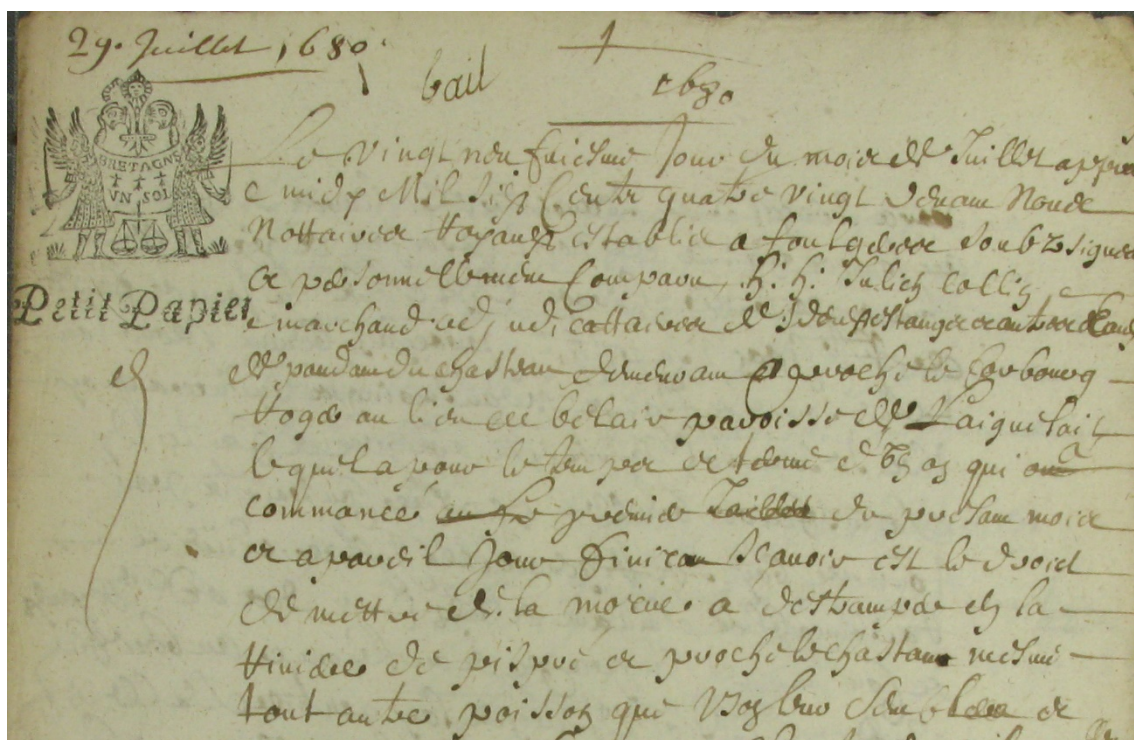 29. Juillet 1680
bail
1680
BRETAGNE
UN SOL
Petit Papier
Le vingt neufviesme Jour du mois de Juillet appres
midy Mil six Cents quatre vingt devant Nous
Nottaires Royaux establis a foulgeres soubzsignes
a personnellement Comparu h: h: Julien Collin
marchand adjudicattaire des estangs et autres
dependances du chasteau demeurant proche le forbourg
Roger au lieu de belair parroisse de Laignelait
lequel a pour le temps et terme de ans qui ont
commancé premier du presant mois
et a pareil jour finiront Scavoir est le droict
de mettre de la morue a destramper en la
riviere de et proche le chasteau mesme
tout autre poisson que bon leur semblera et